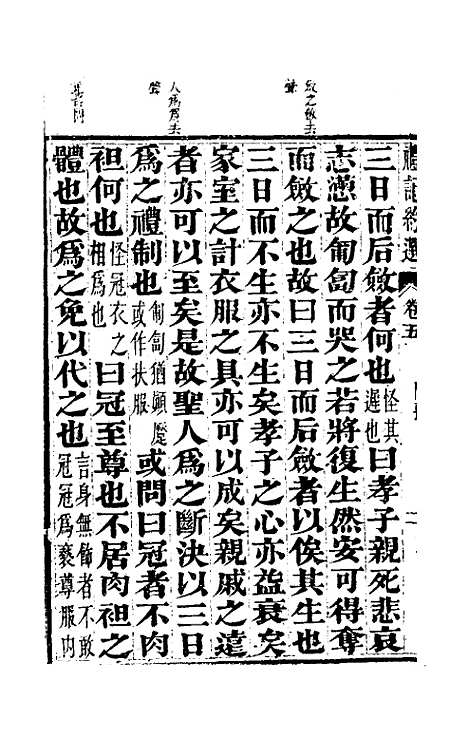 斂之斂去
聲
人爲爲去
聲
卷五
三日而后斂者何也怪其遲也曰孝子親死悲哀
志懣故匍匐而哭之若將復生然安可得奪
而斂之也故曰三日而后斂者以俟其生也
三日而不生亦不生矣孝子之心亦益衰矣
家室之計衣服之具亦可以成矣親戚之遠
者亦可以至矣是故聖人爲之斷決以三日
爲之禮制也匍匐猶顛蹷或作扶服或問曰冠者不肉
袒何也怪冠衣之相爲也曰冠至尊也不居肉袒之
體也故爲之免以代之也言身無飾者不敢冠冠爲褻尊服肉